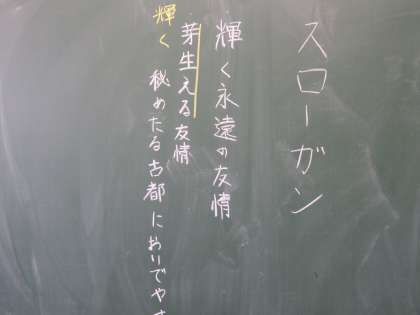 スローガン
輝く永遠の友情
芽生える友情
輝く 秘めたる古都においでやす